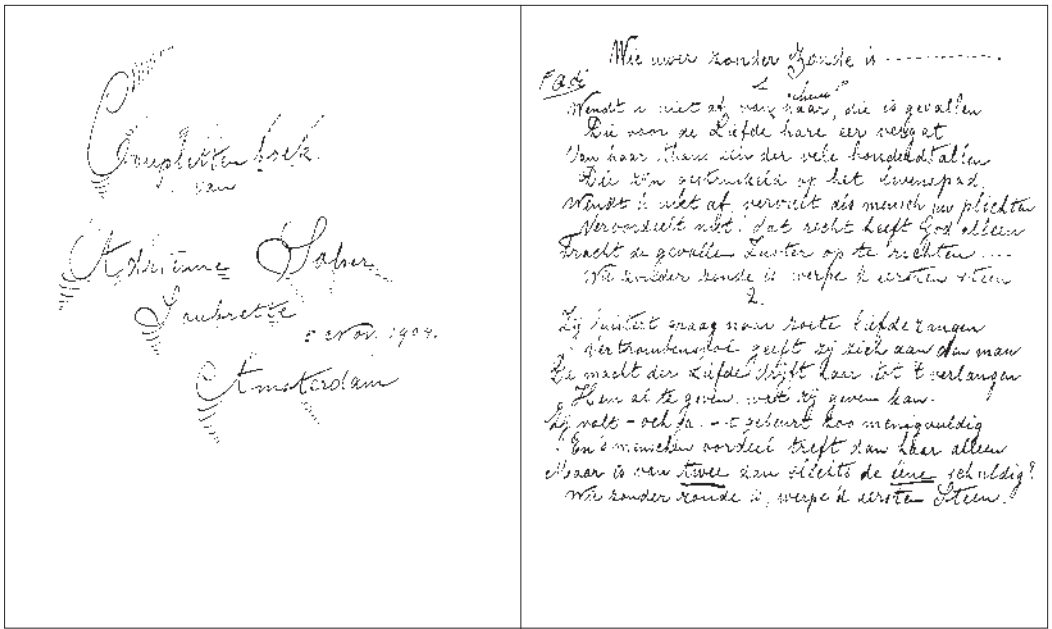 Coupletten boek
van
Adriënne Solser
Soubrette
5 Nov. 1904.
Amsterdam
Wie uwer zonder Zonde is ..............
1
"cheue"
Wendt u niet af van haar, die is gevallen
Die voor de Liefde hare eer vergat
Van haar thans één der vele honderdtallen
Die zijn gestruikeld op het levenspad.
Wendt u niet af, vervult als mensch uw plichten
Veroordeelt niet! dat recht heeft God alleen
Tracht de gevallen Zuster op te richten ....
Wie zonder zonde is werpe d'eersten steen
2.
Zij luistert graag naar zoete liefdezangen
Vertrouwensvol geeft zij zich aan den man
De macht der Liefde drijft haar tot 't verlangen
Hem al te geven wat zij geven kan.
Zij valt - och ja. - 't gebeurt zoo menigvuldig
En 's menschen oordeel treft dan haar alleen
Maar is van twee dan slechts de ééne schuldig?
Wie zonder zonde is, werpe d'eersten Steen.